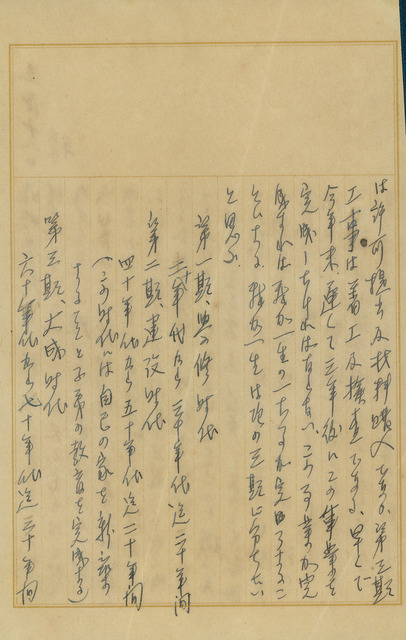 は許可提出及材料購入である 第三期
工事は着工及検査である 早くて
今年末、遅くて三年後にこの事業を
完成しなければならない この事業が完
成すれば我が一生の一
と 我が一生は次の三期に分ちたい
と思ふ
第一期 修時代
二十年代から三十年代迄二十年間
第二期 建設時代
四十年代から五十年代迄二十年間
(この時代には自己の家を新築
すること子弟の教育を完成する)
第三期、大成時代
六十年代から七十年代迄二十年間